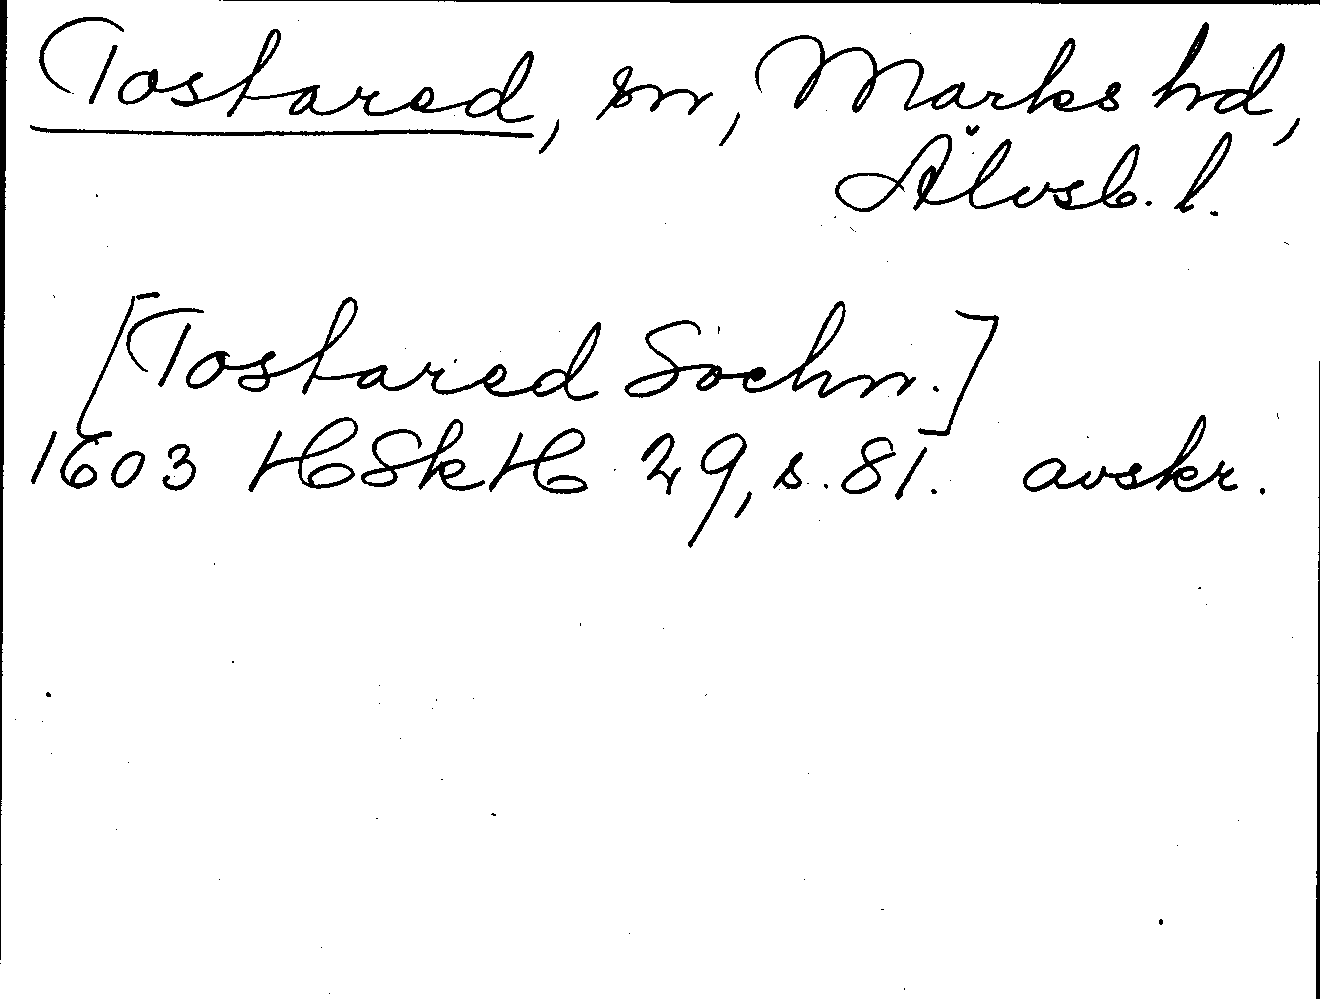 Tostared, sn, Marks hd,
Älvsb. l.
[Tostared Sochn.]
1603 HSkH 29, s. 81. avskr.